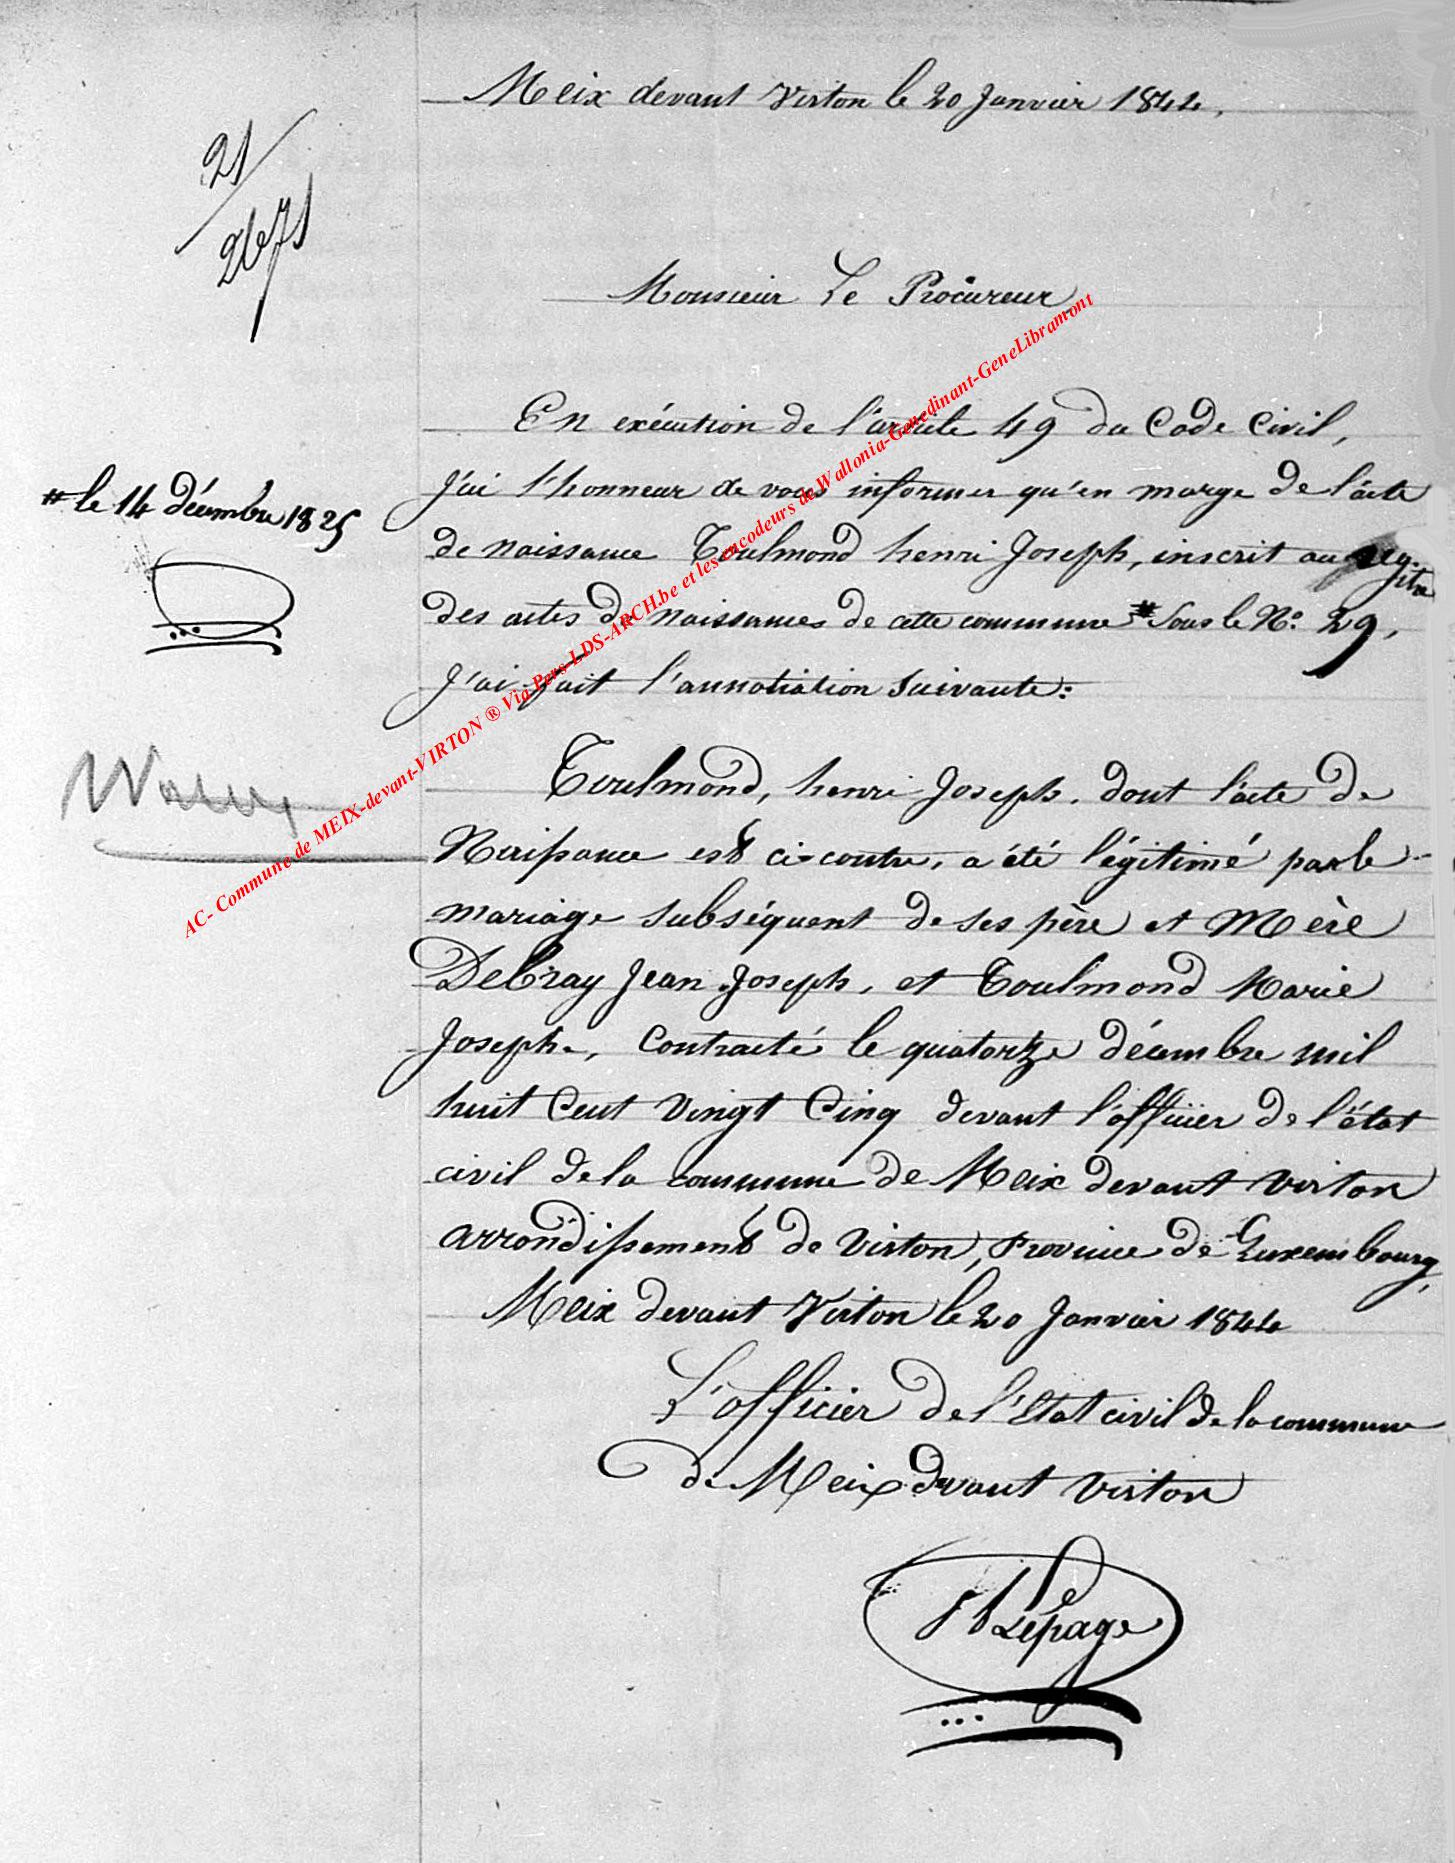 Meix devant Virton le 20 Janvier 1844.
21
2671
Monsieur Le Procureur
En exécution de l'article 49 du Code Civil,
J'ai l'honneur de vous informer qu'en marge de l'acte
de naissance Toulmond henri Joseph, inscrit au registre
des actes de naissances de cette commune # Sous le N° 29,
J'ai fait l'annotiation Suivante:
# le 14 décembre 1825
Toulmond, henri Joseph. dont l'acte de
Naissance est ci-contre, a été légitimé par le
mariage subséquent de ses père et Mère
Debray Jean Joseph, et Toulmond Marie
Joseph, Contracté le quatortze décembre mil
huit Cent Vingt Cinq devant l'officier de l'état
civil de la commune de Meix devant Virton
arrondissement de Virton, Province de Luxembourg,
Meix devant Virton le 20 Janvier 1844
L'officier de l'Etat civil de la commune
de Meix devant Virton
Lepage
AC- Commune de MEIX-devant-VIRTON ® Via Pers-LDS-ARCH.be et les encodeurs de Wallonia-Genedinant-GeneLibramont